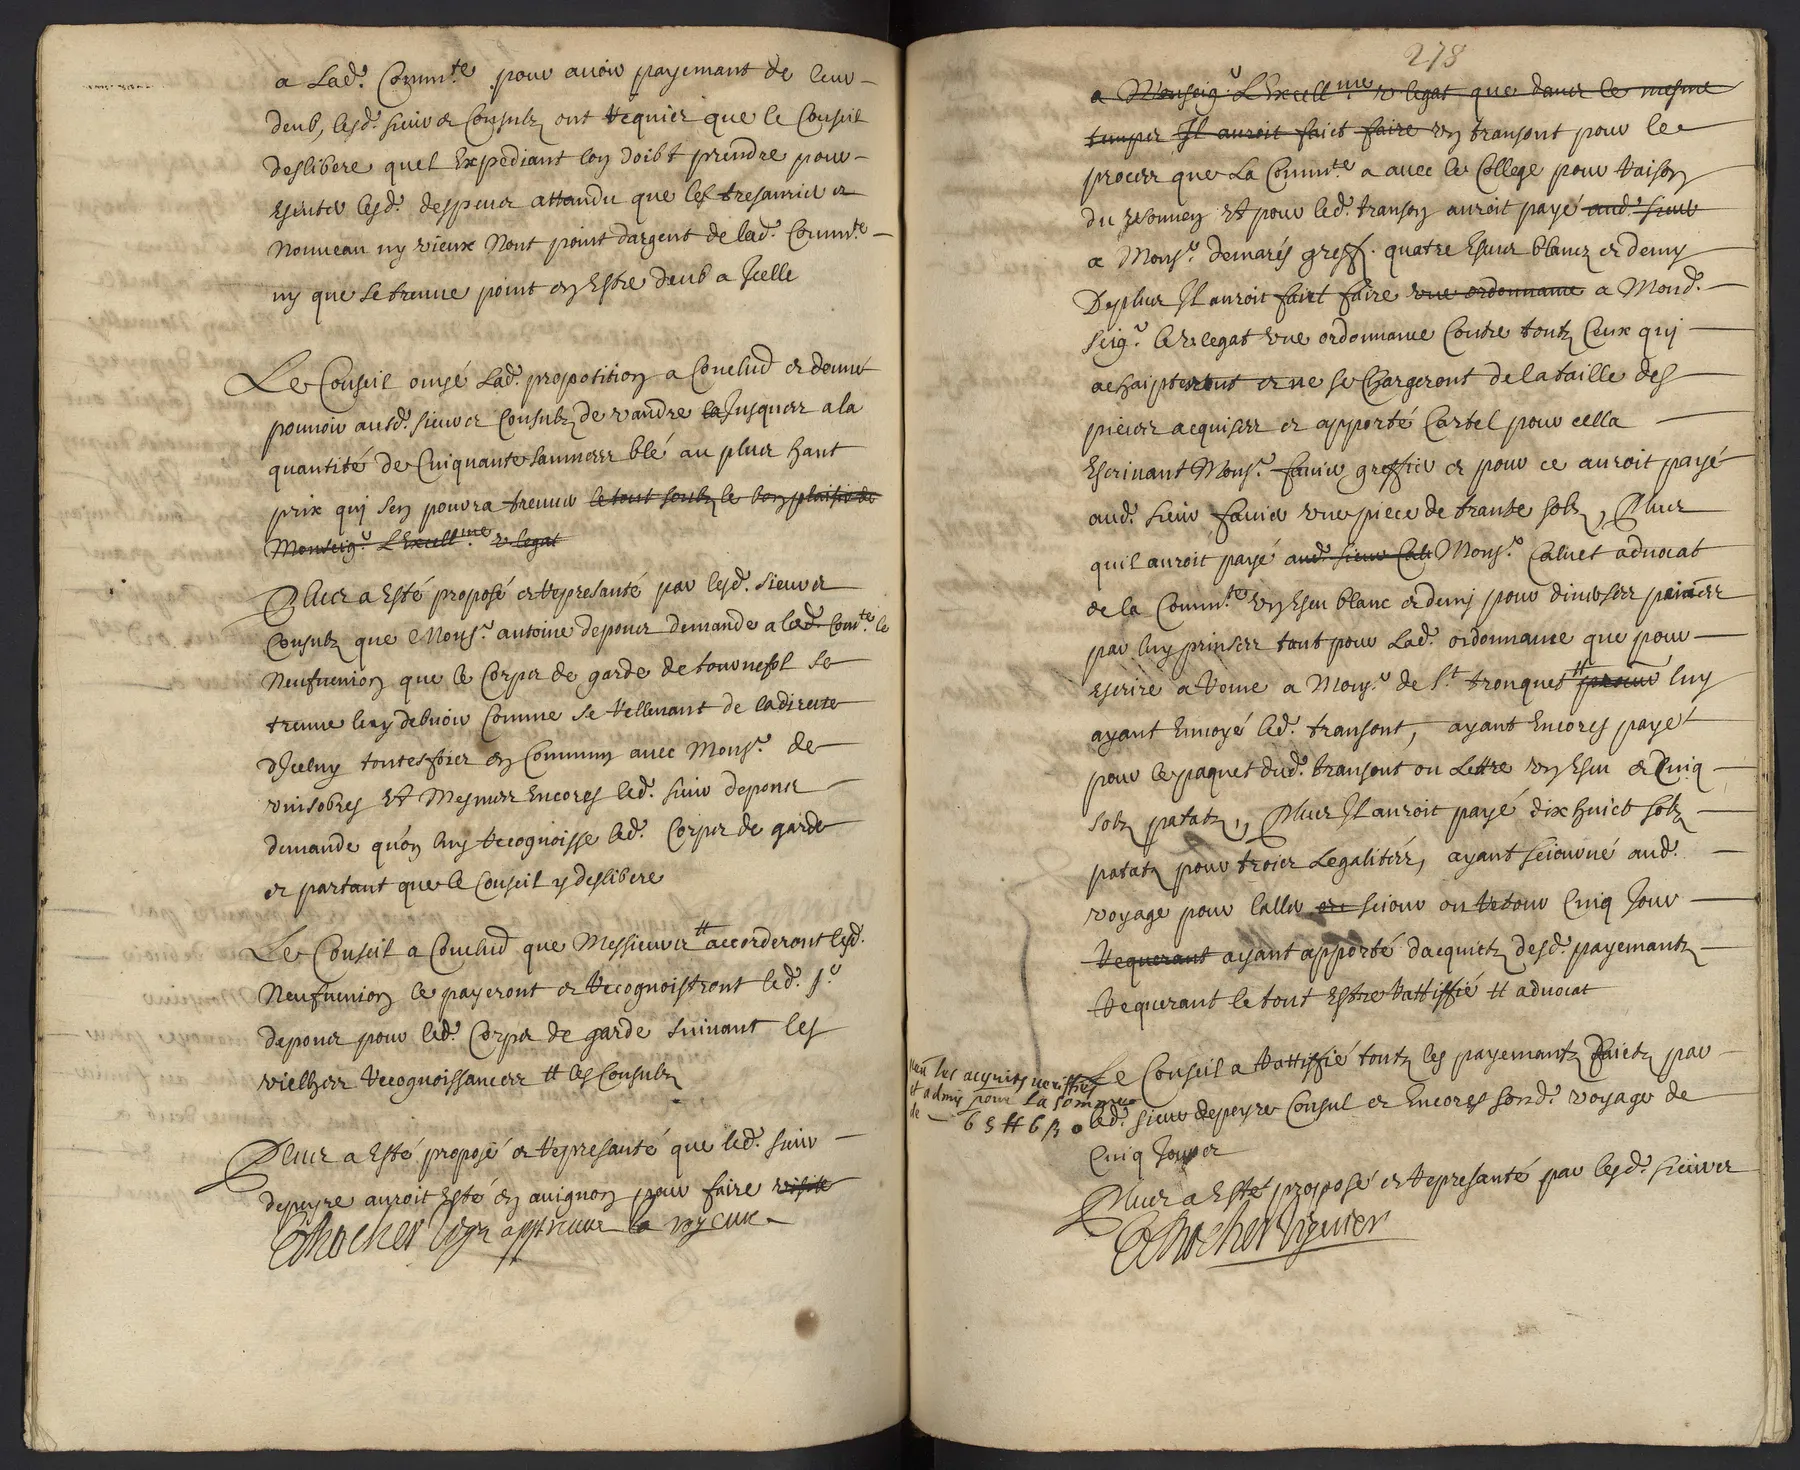 a Lad.e Commte pour avoir payemant de leur
deub, lesd. sieurs Consulz ont requier que le Conseil
deslibere quel Expediant lon doibt prendre pour
Esviter lesd. despens attandu que les tresaurier
nouveau ny vieux nont point dargent de lad. Commte
ny que se treuve point en Estre deub a Icelle
Le Conseil ouysé Lad. propotition a Conclud et donné
pouvoir ausd. sieurs Consulz de vandre la Jusques a la
quantité de Cinquante saumees blé au plus haut
prix quy sen pouvra treuver le tout soubz le bon plaisir de
Monseigr LExcellme v legat
Plus a Esté proposé et represanté par lesd. sieurs
Consulz que Monsr antoine depons demande a lad. Comte le
Neufvenion que le Corps de garde de tournefol se
treuve luy debvoir Comme se rellevant de la directe
dIceluy toutesfois en Commun avec Monsr de
vinsobres Et Mesmes Encores led. sieur depons
demande quon luy recognoisse led. Corps de garde
et partant que le Conseil y deslibere
Le Conseil a Conclud que Messieurs # accorderont lesd.
Neufvenion le payeront et recognoistront led. sr
depons pour led. Corps de garde suivant les
vielhes recognoissances # les Consulz
Plus a Esté proposé et represanté que led. sieur
depeyre auroit Esté en avignon pour faire
Rochier approuve la
278
a Monseigr LExcellme v legat que dans le mesme
temps Il auroit faict faire un transont pour le
proces que La Commte a avec le College pour raison
du Et pour led. transon auroit payé aud. sieur
a Monsr demarés greff. quatre Escus blancz et demy
Desplus Il auroit faict faire une ordonnanse a Mond.
seigr le v legat une ordonnanse Contre toutz Ceux quy
achaipteront et ne se Chargeront de la taille des
pieces acquises et apporté Cartel pour cella
Escrivant Monsr favier greffier et pour ce auroit payé
aud. sieur favier une piece de trante solz, Plus
quil auroit payé aud. sieur Cal Monsr Calvet advocat
de la Commte un Escu blanc et demi pour diverses peines
par luy prinses tant pour Lad. ordonnanse que pour
Escrire a Rome a Monsr de St tronquet # luy
ayant Envoyé led. transont, ayant Encores payé
pour le paquet dud. transont ou Lettre un Escu et Cinq
solz patatz, Plus Il auroit payé dix huict solz
patatz pour trois Legalités, ayant seiourné aud.
voyage pour laller et seiour ou retour Cinq Jour
requerant ayant apporté dacquietz desd. payemantz
requerant le tout Estre rattiffié # advocat
Le Conseil a rattiffié toutz les payemantz faictz par
led. sieur depeyre Consul et Encores sond. voyage de
Cinq Jours
les acquits veriffiés
et admis pour la somme
de 65 # 6 s 0
Plus a Esté proposé et represanté par lesd. sieurs
Rochier viguier